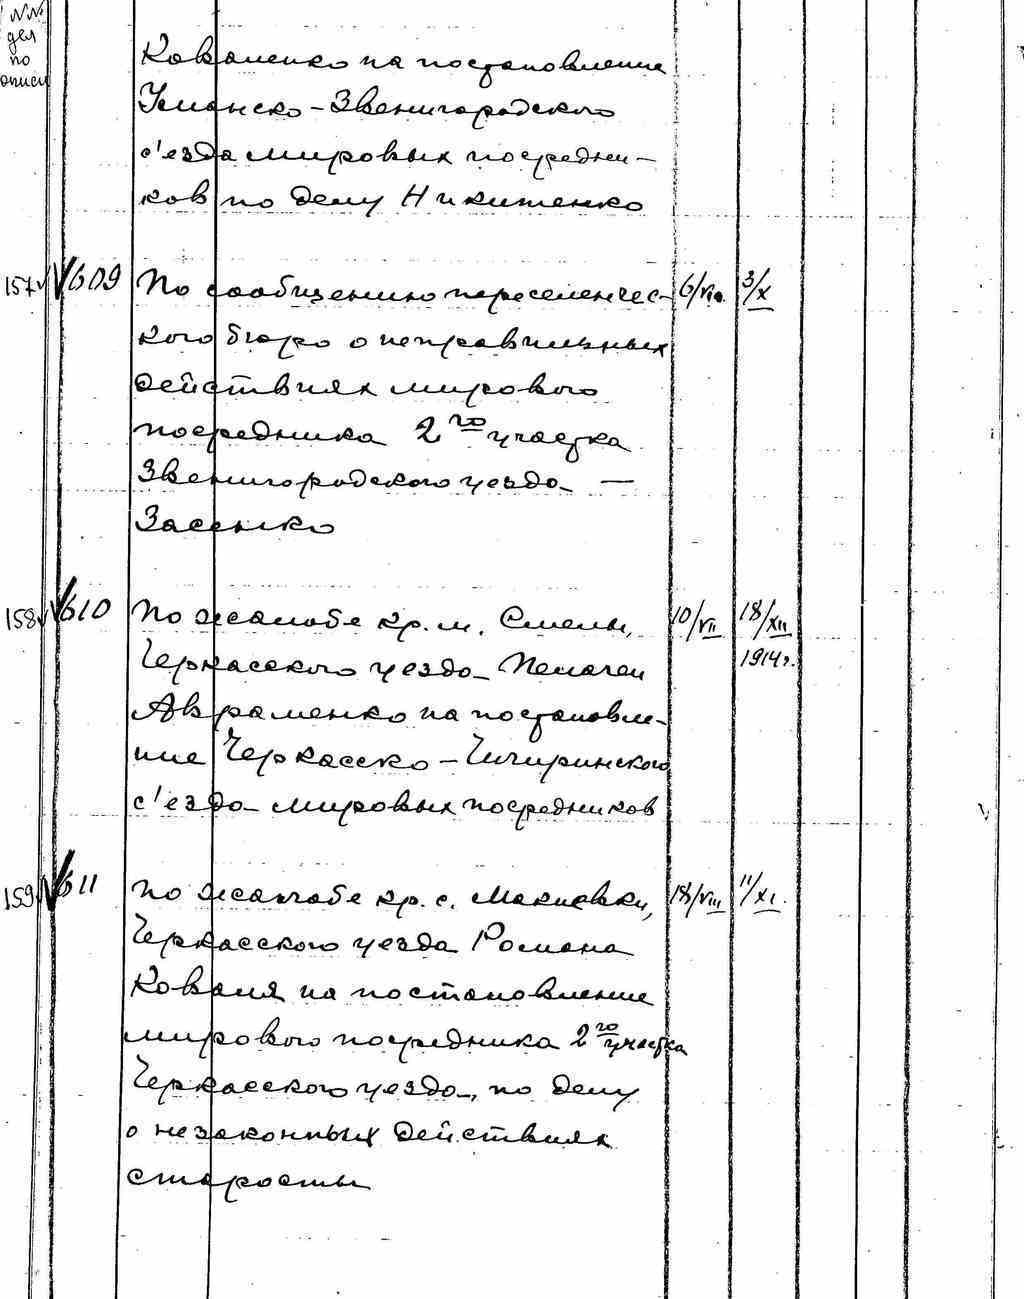 №№
дел
по
описи
Коваленко на постановление
Уманско-Звенигородского
с'езда мировых посредни-
ков по делу Никитенко
157 609 По сообщению переселенчес- 6/VII. 3/X
кого бюро о неправильных
действиях мирового
посредника 2го участка
Звенигородского уезда -
Засенко
158 610 По жалобе кр. м. Смелы, 10/VII 18/XII
Черкасского уезда Пелагеи 1914г.
Авраменко на постановле-
ние Черкасско-Чигиринского
с'езда мировых посредников
159 611 По жалобе кр. с. Макиевки, 18/VIII 11/XI.
Черкасского уезда Романа
Коваля на постановление
мирового посредника 2го участка
Черкасского уезда, по делу
о незаконных действиях
старосты